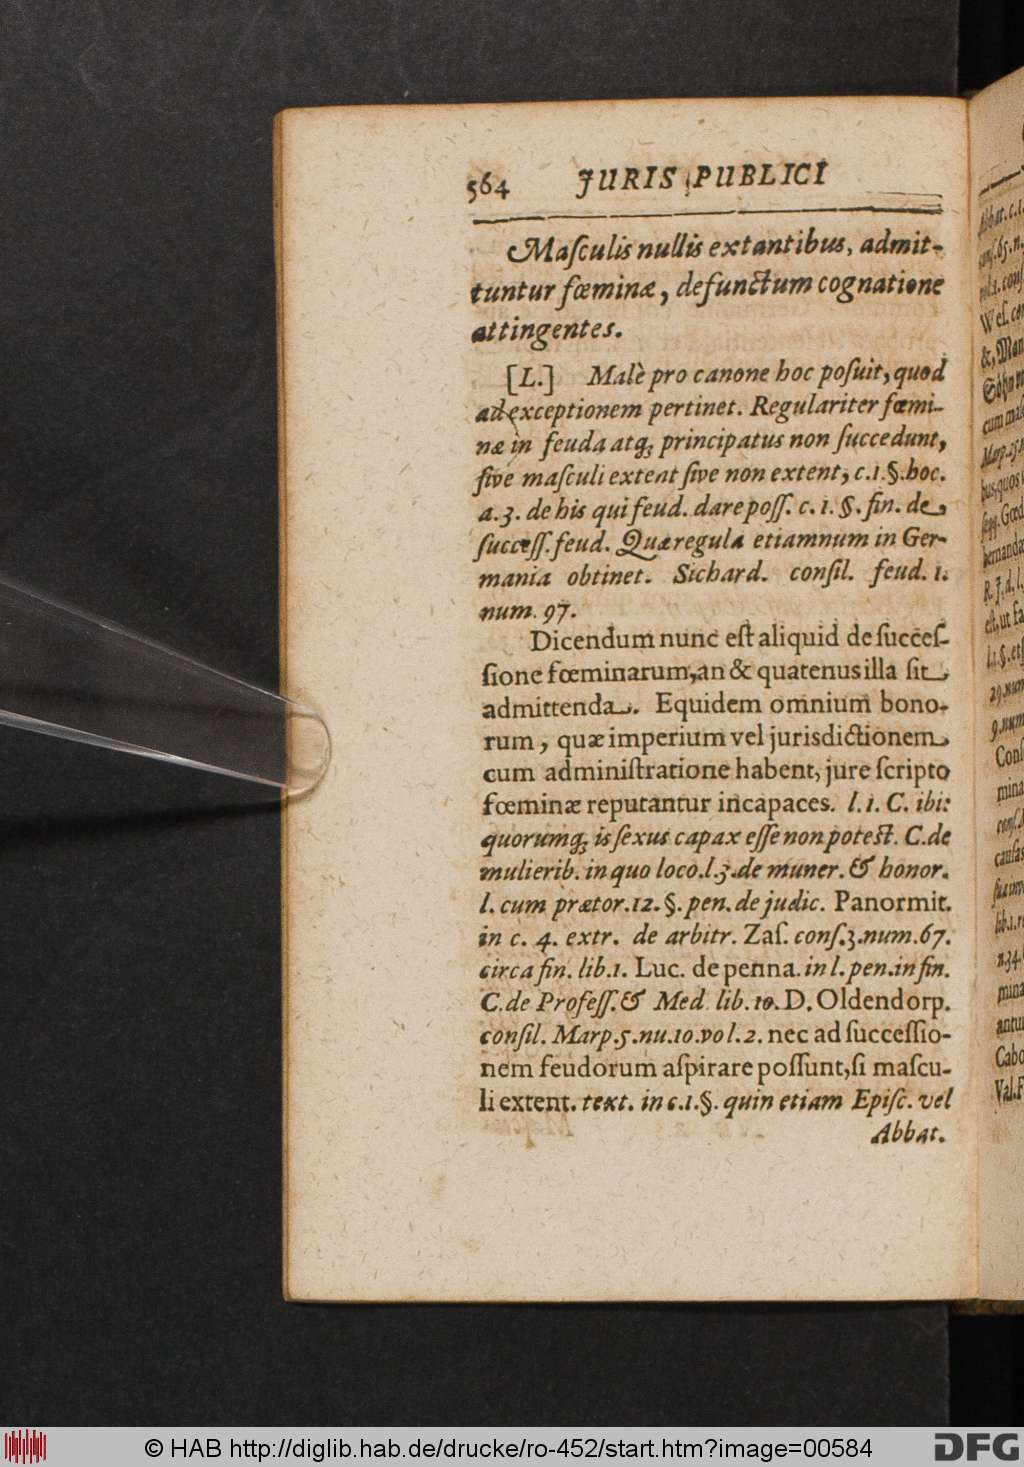 564 JURIS PUBLICI
Maſculis nullis extantibus, admit-
tuntur fœminæ, defunctum cognatione
attingentes.
[L.] Malè pro canone hoc poſuit, quod
ad exceptionem pertinet. Regulariter fœmi-
næ in feuda atq; principatus non ſuccedunt,
ſive maſculi extent ſive non extent, c.1.§.hoc.
a.3. de his qui feud. dare poſſ. c. 1. §. fin. de
ſucceſſ. feud. Quæ regula etiamnum in Ger-
mania obtinet. Sichard. conſil. feud. 1.
num. 97.
Dicendum nunc eſt aliquid de ſucceſ-
ſione fœminarum, an & quatenus illa ſit
admittenda. Equidem omnium bono-
rum, quæ imperium vel jurisdictionem
cum adminiſtratione habent, jure ſcripto
fœminæ reputantur incapaces. l. 1. C. ibi:
quorumq; is ſexus capax eſſe non poteſt. C. de
mulierib. in quo loco. l.3. de muner. & honor.
l. cum prætor. 12. §. pen. de judic. Panormit.
in c. 4. extr. de arbitr. Zaſ. conſ. 3. num. 67.
circa fin. lib. 1. Luc. de penna. in l. pen. in fin.
C. de Profeſſ. & Med. lib. 10. D. Oldendorp.
conſil. Marp. 5. nu. 10. vol. 2. nec ad ſucceſſio-
nem feudorum aſpirare poſſunt, ſi maſcu-
li extent. text. in c. 1. §. quin etiam Epiſc. vel
Abbat.
Abbat. c. 1.
conſ. 65. n.
vol. 1. conſ
Weſ. con
&, Man
Schn
cum maſ
Marp. 25
bus, quos
ſeqq. Gœd
hernanda
R. J. d. l.
eſt, ut fa
l. 1. §. et ſ
29. num
9. num
Conſ
mina
conſ.
cauſas
ſua
lib. 1. r
n. 34.
mina
antu
Cabo
Val. F
© HAB http://diglib.hab.de/drucke/ro-452/start.htm?image=00584
DFG